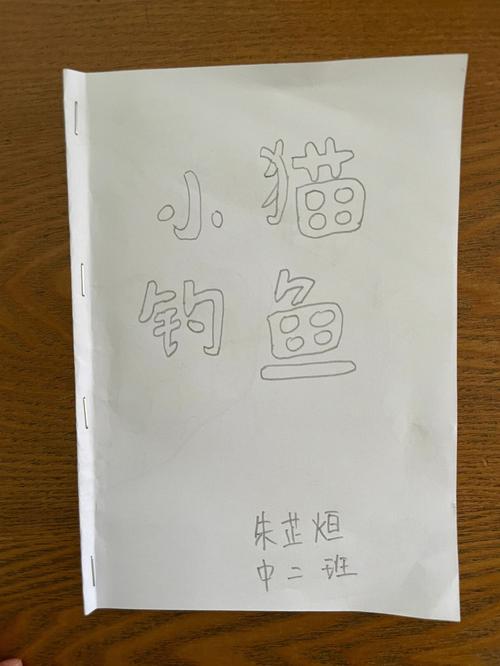 小猫
钓鱼
朱芷烜
中二班